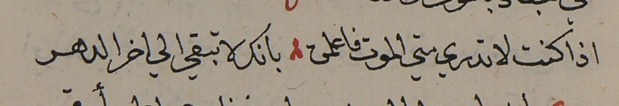 اذا كنت لا تدري متي الموت فاعلمن بانك لا تبقي الي اخر الدهر